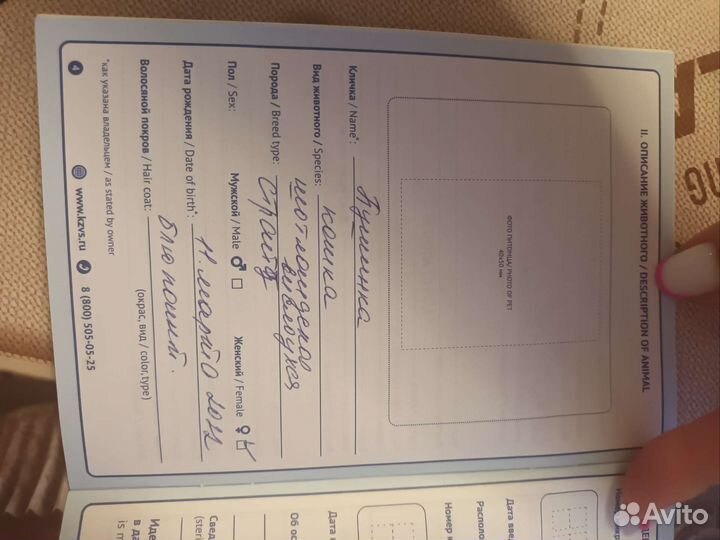 II. ОПИСАНИЕ ЖИВОТНОГО / DESCRIPTION OF ANIMAL
ФОТО ПИТОМЦА/ PHOTO OF PET
40х50 мм
Кличка / Name*: Пушинка
Вид животного / Species: кошка
шотландская
Порода / Breed type: вислоухая
страйт
Пол / Sex: Мужской / Male ♂ Женский / Female ♀
Дата рождения / Date of birth*: 11. марта 2022
Волосяной покров / Hair coat: блю поинт.
(окрас, вид / color, type)
*как указана владельцем / as stated by owner
4 www.kzvs.ru 8 (800) 505-05-25
Дата вве
Номер
Располо
Номер
Дата
Об ос
Свед
(steri
Иде
в да
is m
Avito